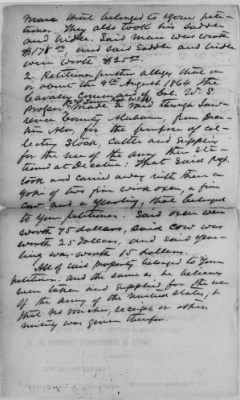 mare that belonged to your peti-
tioner. They also took his saddle
and bridle. Said mare was worth
$175.00 and said saddle and bridle
were worth $25.00.
2. Petitioner further alleges that on
or about the 9th August 1864 the
Cavalry Command of Col. W. S.
made a raid through Law-
rence County Alabama, from Deca-
tur Ala, for the purpose of col-
lecting Stock, Cattle and Supplies
for the use of the army then sta-
tioned at Decatur. That said
took and carried away with them a
yoke of two fine work oxen, a fine
cow and a yearling, that belonged
to your petitioner. Said oxen were
worth 75 dollars, said cow was
worth 25 dollars, and said year-
ling was worth 10 dollars.
All of said property belonged to your
petitioner and the same as he believes
been taken and supplied for the use
of the army of the United States, &
that no voucher, receipt or other
writing was given therefor.